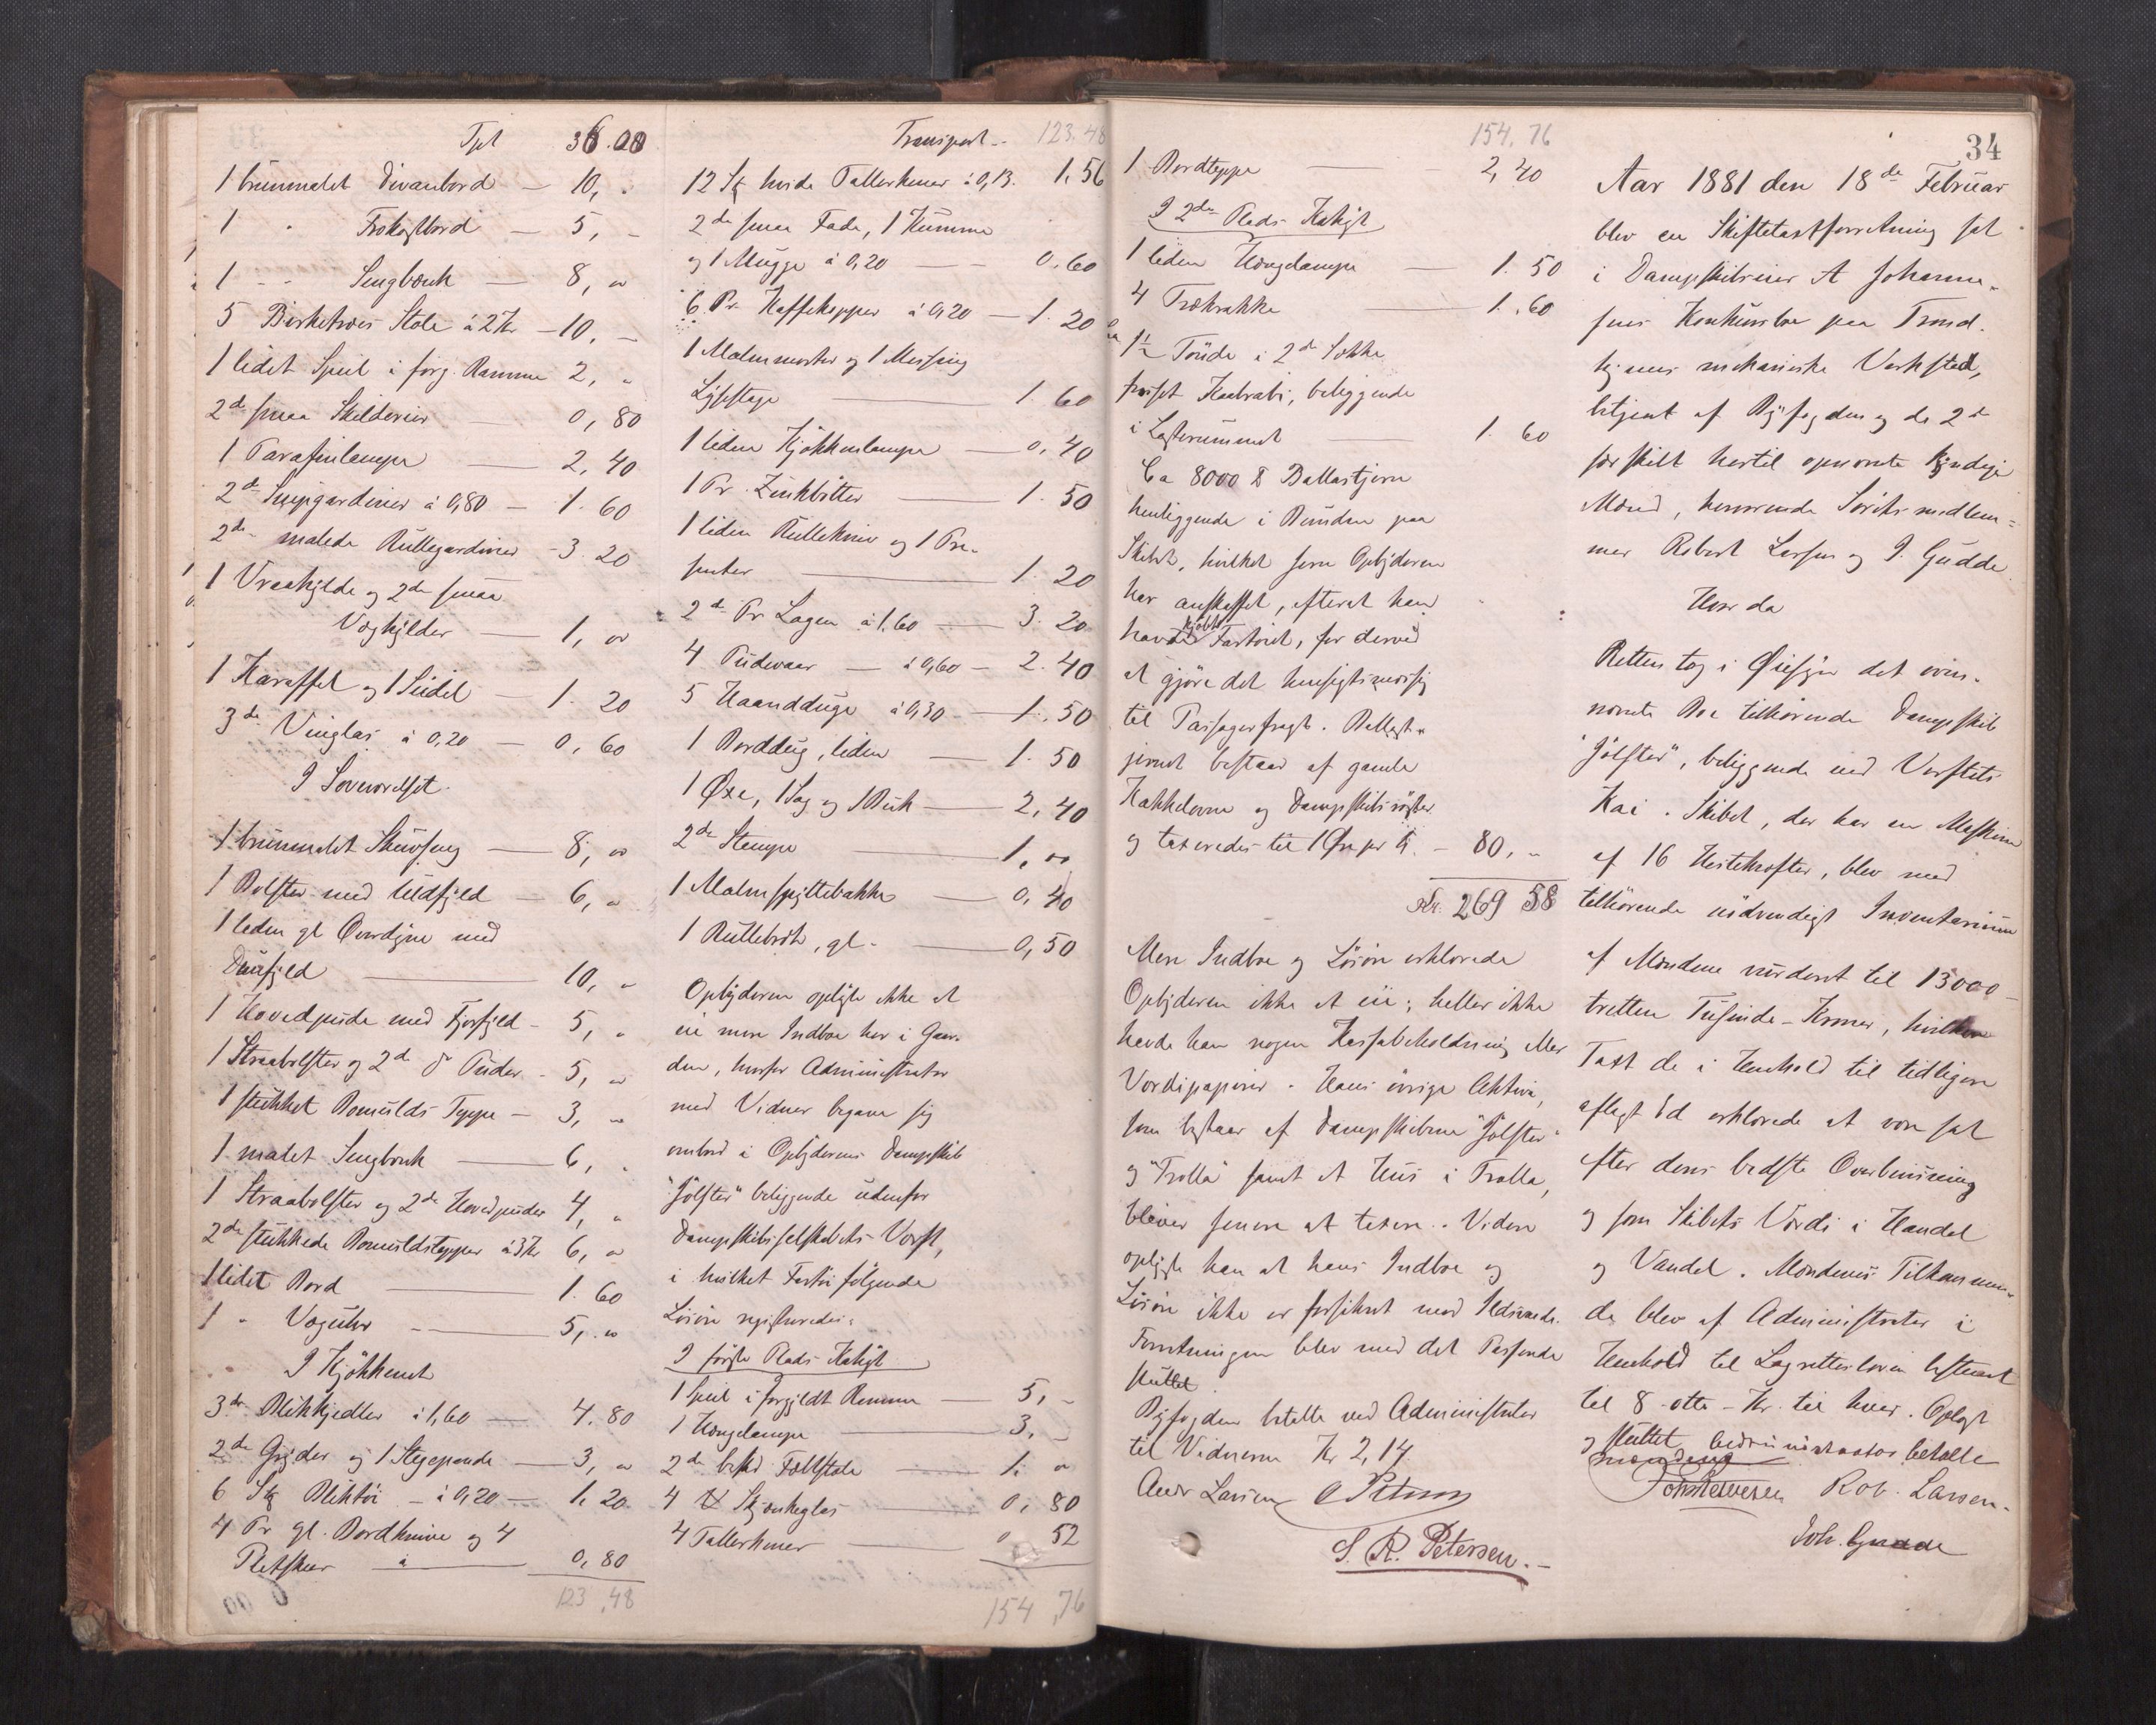 Tpt 36.08
1 brunmalet Divanbord — 10, „
1 „ Frokostbord — 5, „
1 „ Sengbænk — 8, „
5 Birketræes Stole à 2 Kr — 10, „
1 lidet Speil i forg. Ramme 2, „
2de smaa Skilderier 0,80
1 Parafinlampe — 2,40
2de Snipgardiner à 0,80 — 1.60
2de malede Rullegardiner — 3.20
1 Vraahylde og 2de smaa
Væghylder — 1, „
1 Karaffel og 1 Seidel — 1.20
3de Vinglas à 0,20 — 0,60
I Soveværelset
1 brunmalet Skuvseng — 8, „
1 Bolster med Uldfyld — 6, „
1 liden gl Overdyne med
Duunfyld — 10, „
1 Hovedpude med Fjærfyld — 5, „
1 Straabolster og 2de do Puder — 5, „
1 stukket Bomulds Teppe — 3, „
1 malet Sengbænk — 6, „
1 Straabolster og 2de Hovedpuder 4, „
2de stukkede Bomuldstepper à 3 Kr 6, „
1 lidet Bord — 1.60
1 „ Væguhr — 5, „
I Kjökkenet
3de Blikkjedler à 1,60 — 4.80
2de Gryder og 1 Stegepande — 3, „
6 Stk Bliktöi — à 0,20 — 1.20
4 Pr gl. Bordknive og 4
Pletskeer — 0,80
123,48
Transport — 123.48
12 Stk hvide Tallerkener à 0,13. 1,56
2de smaa Fade, 1 Kumme
og 1 Mugge à 0,20 — 0.60
6 Pr Kaffekopper à 0,20 — 1.20
1 Malmmorter og 1 Messing
Lysestage — 1 60
1 liden Kjökkenlampe — 0,40
1 Pr Zinkbötter — 1.50
1 liden Rullekniv og 1 Pre-
senter — 1.20
2de Pr Lagen à 1.60 — 3.20
4 Pudevaar — à 0,60 — 2.40
5 Haandduge à 0,30 — 1.50
1 Borddug, liden — 1.50
1 Øxe, 1 Sag og 1 Buk — 2,40
2de Stampe 1, „
1 Malmspyttebakke — 0,40
1 Rullebræt, gl. — 0,50
Opbyderen oplyste ikke at
eie mere Indboe her i Gaar-
den, hvorfor Administrator
med Vidner begave sig
ombord i Opbyderens Dampskib
"Jölster" beliggende udenfor
Dampskibsselskabets Værft,
i hvilket Fartöi fölgende
Lösöre registreredes:
I förste Plads Kahyt
1 Speil i forgyldt Ramme — 5, „
1 Hængelampe — 3, „
2de Feldtstole — 1. „
4 Skjænkeglas — 0,80
4 Tallerkener — 0 52
154,76
154,76
1 Bordteppe — 2,40
I 2den Plads Kahyt
1 liden Hængelampe — 1.50
4 Trækrakke — 1.60
ca 1½ Tönde i 2de Sække
frosset Kaalrabi, beliggende
i Lasterummet — 1.60
Ca 8000 ℔ Ballastjern
henliggende i Bunden paa
Skibet, hvilket Jern Opbyderen
har anskaffet, efterat han
havde kjöbt Fartöiet, for derved
at gjöre det hensigtsmæssig
til Passagerfragt. Ballast-
jernet bestaar af gamle
Kakkelovne og Dampskibsrister
og taxeredes til 1 Øre pr ℔. — 80, „
Kr. 269 58
Mere Indboe og Lösöre erklærede
Opbyderen ikke at eie; heller ikke
havde han nogen Kassabeholdning eller
Værdipapirer. Hans övrige Aktiva,
som bestaar af Dampskibene "Jölster"
og "Trolla" samt et Huus i Trolla,
bliver senere at taxere. Videre
oplyste han at hans Indboe og
Lösöre ikke er forsikret mod Ildsvaade.
Forretningen blev med det Passerede
sluttet
Byfogden betalte ved Administrator
til Vidnerne Kr 2,14
Andr Larsen O Petersen
S. R. Petersen.—
34
Aar 1881 den 18de Februar
blev en Skiftetaxtforretning sat
i Dampskibseier A Johanne-
sens Konkursboe paa Trond-
hjems mekaniske Værksted,
betjent af Byfogden og de 2de
særskilt hertil opnævnte kyndige
Mænd, henværende Söretsmedlem-
mer Robert Larsen og J. Gudde
Hvor da
Retten tog i Øiesyn det oven-
nævnte Boe tilhörende Dampskib
"Jölster", beliggende ved Værftets
Kai. Skibet, der har en Maskine
af 16 Hestekræfter, blev med
tilhörende nödvendigt Inventarium
af Mændene vurderet til 13000 —
tretten Tusinde — Kroner, hvilken
Taxt de i Henhold til tidligere
aflagt Ed erklærede at være sat
efter deres bedste Overbeviisning
og som Skibets Værdi i Handel
og Vandel. Mændenes Tilkommen-
de blev af Administrator i
Henhold til Lagretteloven bestemt
til 8 — otte — Kr. til hver. Oplæst
og sluttet. Administrator betalte
Mændene
Rob. Larsen.
Joh. Gudde